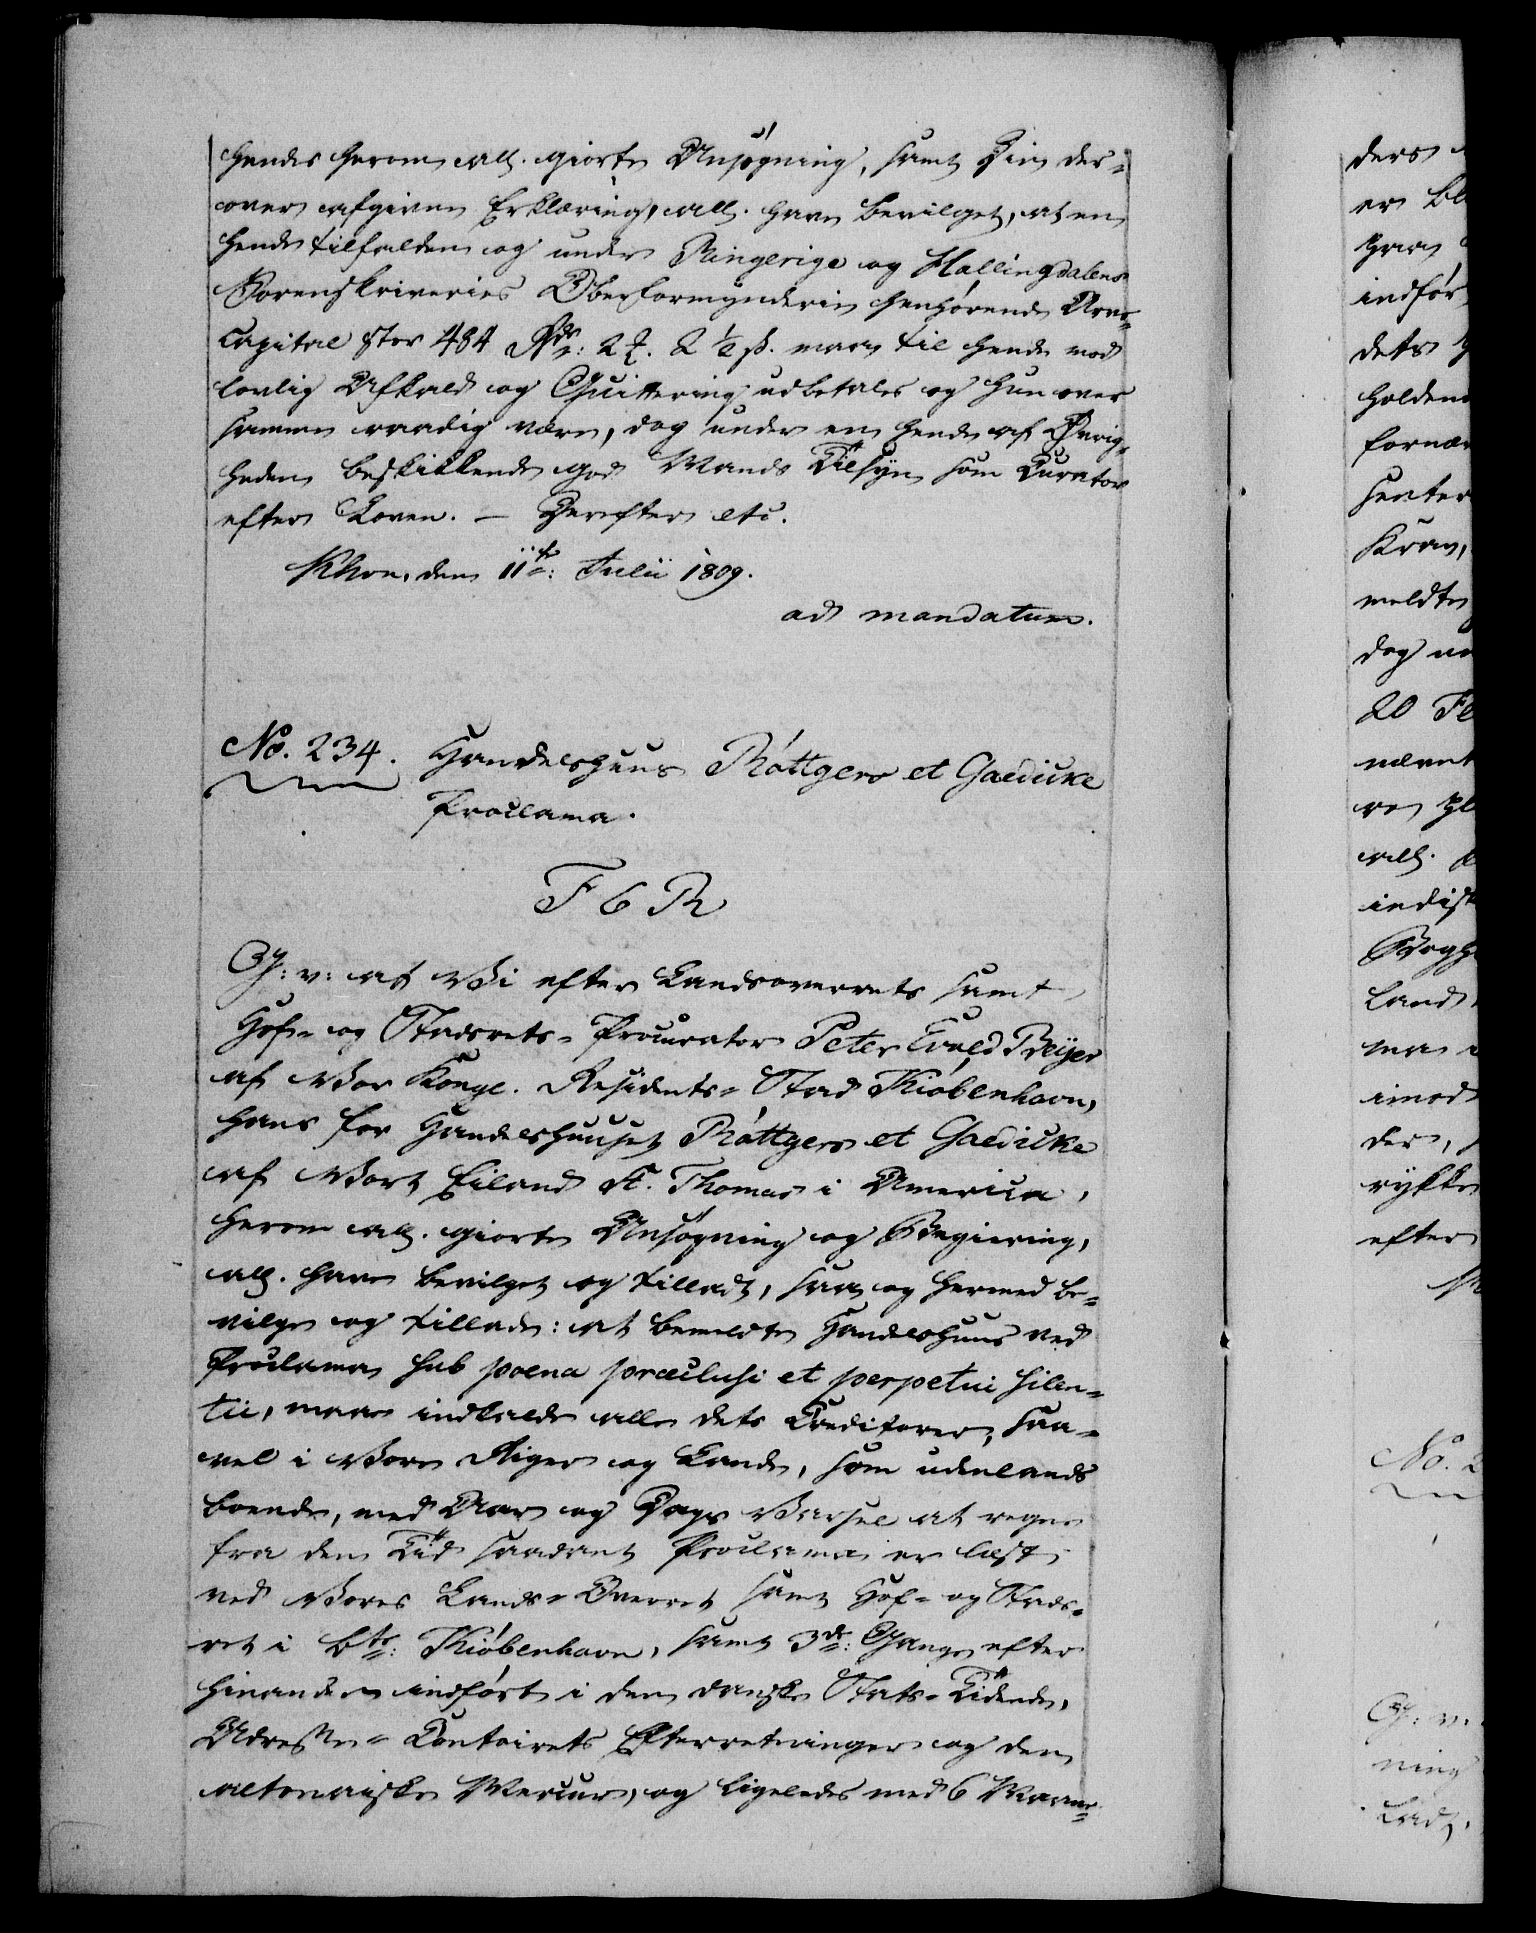 hendes herom all. giorte Ansøgning, samt Din der-
over afgivne Erklæring, all. have bevilget, at en
hende tilfalden og under Ringerige og Hallingdalens
Sorenskriveries Overformynderie henhørende Arve-
Capital stor 484 Rdr: 2 ℔. 2 ½ ß. maae til hende mod
lovlig Afkald og Quittering udbetales og hun over
samme raadig være, dog under en hende af Øvrig-
heden beskikkende god Mands Tilsyn som Curator
efter Loven. — Derefter etc.
Khvn, den 11te: Julii 1809.
ad mandatum.
No. 234. Handelshuus Röttgers et Gaedicke
Proclama.
F 6 R
G: v: at Vi efter Landsoverrets samt
Hof- og Stadsrets- Procurator Peter Evald Beyer
af Vor Kongl. Residents- Stad Kiøbenhavn,
hans for Handelshuuset Röttgers et Gaedicke
af Vort Eiland St. Thomas i America,
herom all. giorte Ansøgning og Begiering,
all. have bevilget og tilladt, saa og hermed be-
vilge og tillade: at bemeldte Handelshuus ved
Proclama sub poena præclusi et perpetui silen-
tii, maae indkalde alle dets Creditorer, saa-
vel i Vore Riger og Lande, som udenlands
boende, med Aar og Dags Varsel at regne
fra den Tid saadant Proclama er læst
ved Vores Lands- Overret samt Hof- og Stads-
ret i bte: Kiøbenhavn, samt 3de: Gange efter
hinanden indført i den danske Stats- Tidende,
Adresse- Contoirets Efterretninger og den
altonaiske Mercur, og ligeledes med 6 Maane-
ders
er bl
indfør
dets
holden
fornæ
senter
Krav,
meldte
dog un
20
nævnt
all.
indisk
Land
imod
der,
rykke
efter
No. 2
G: v:
ning